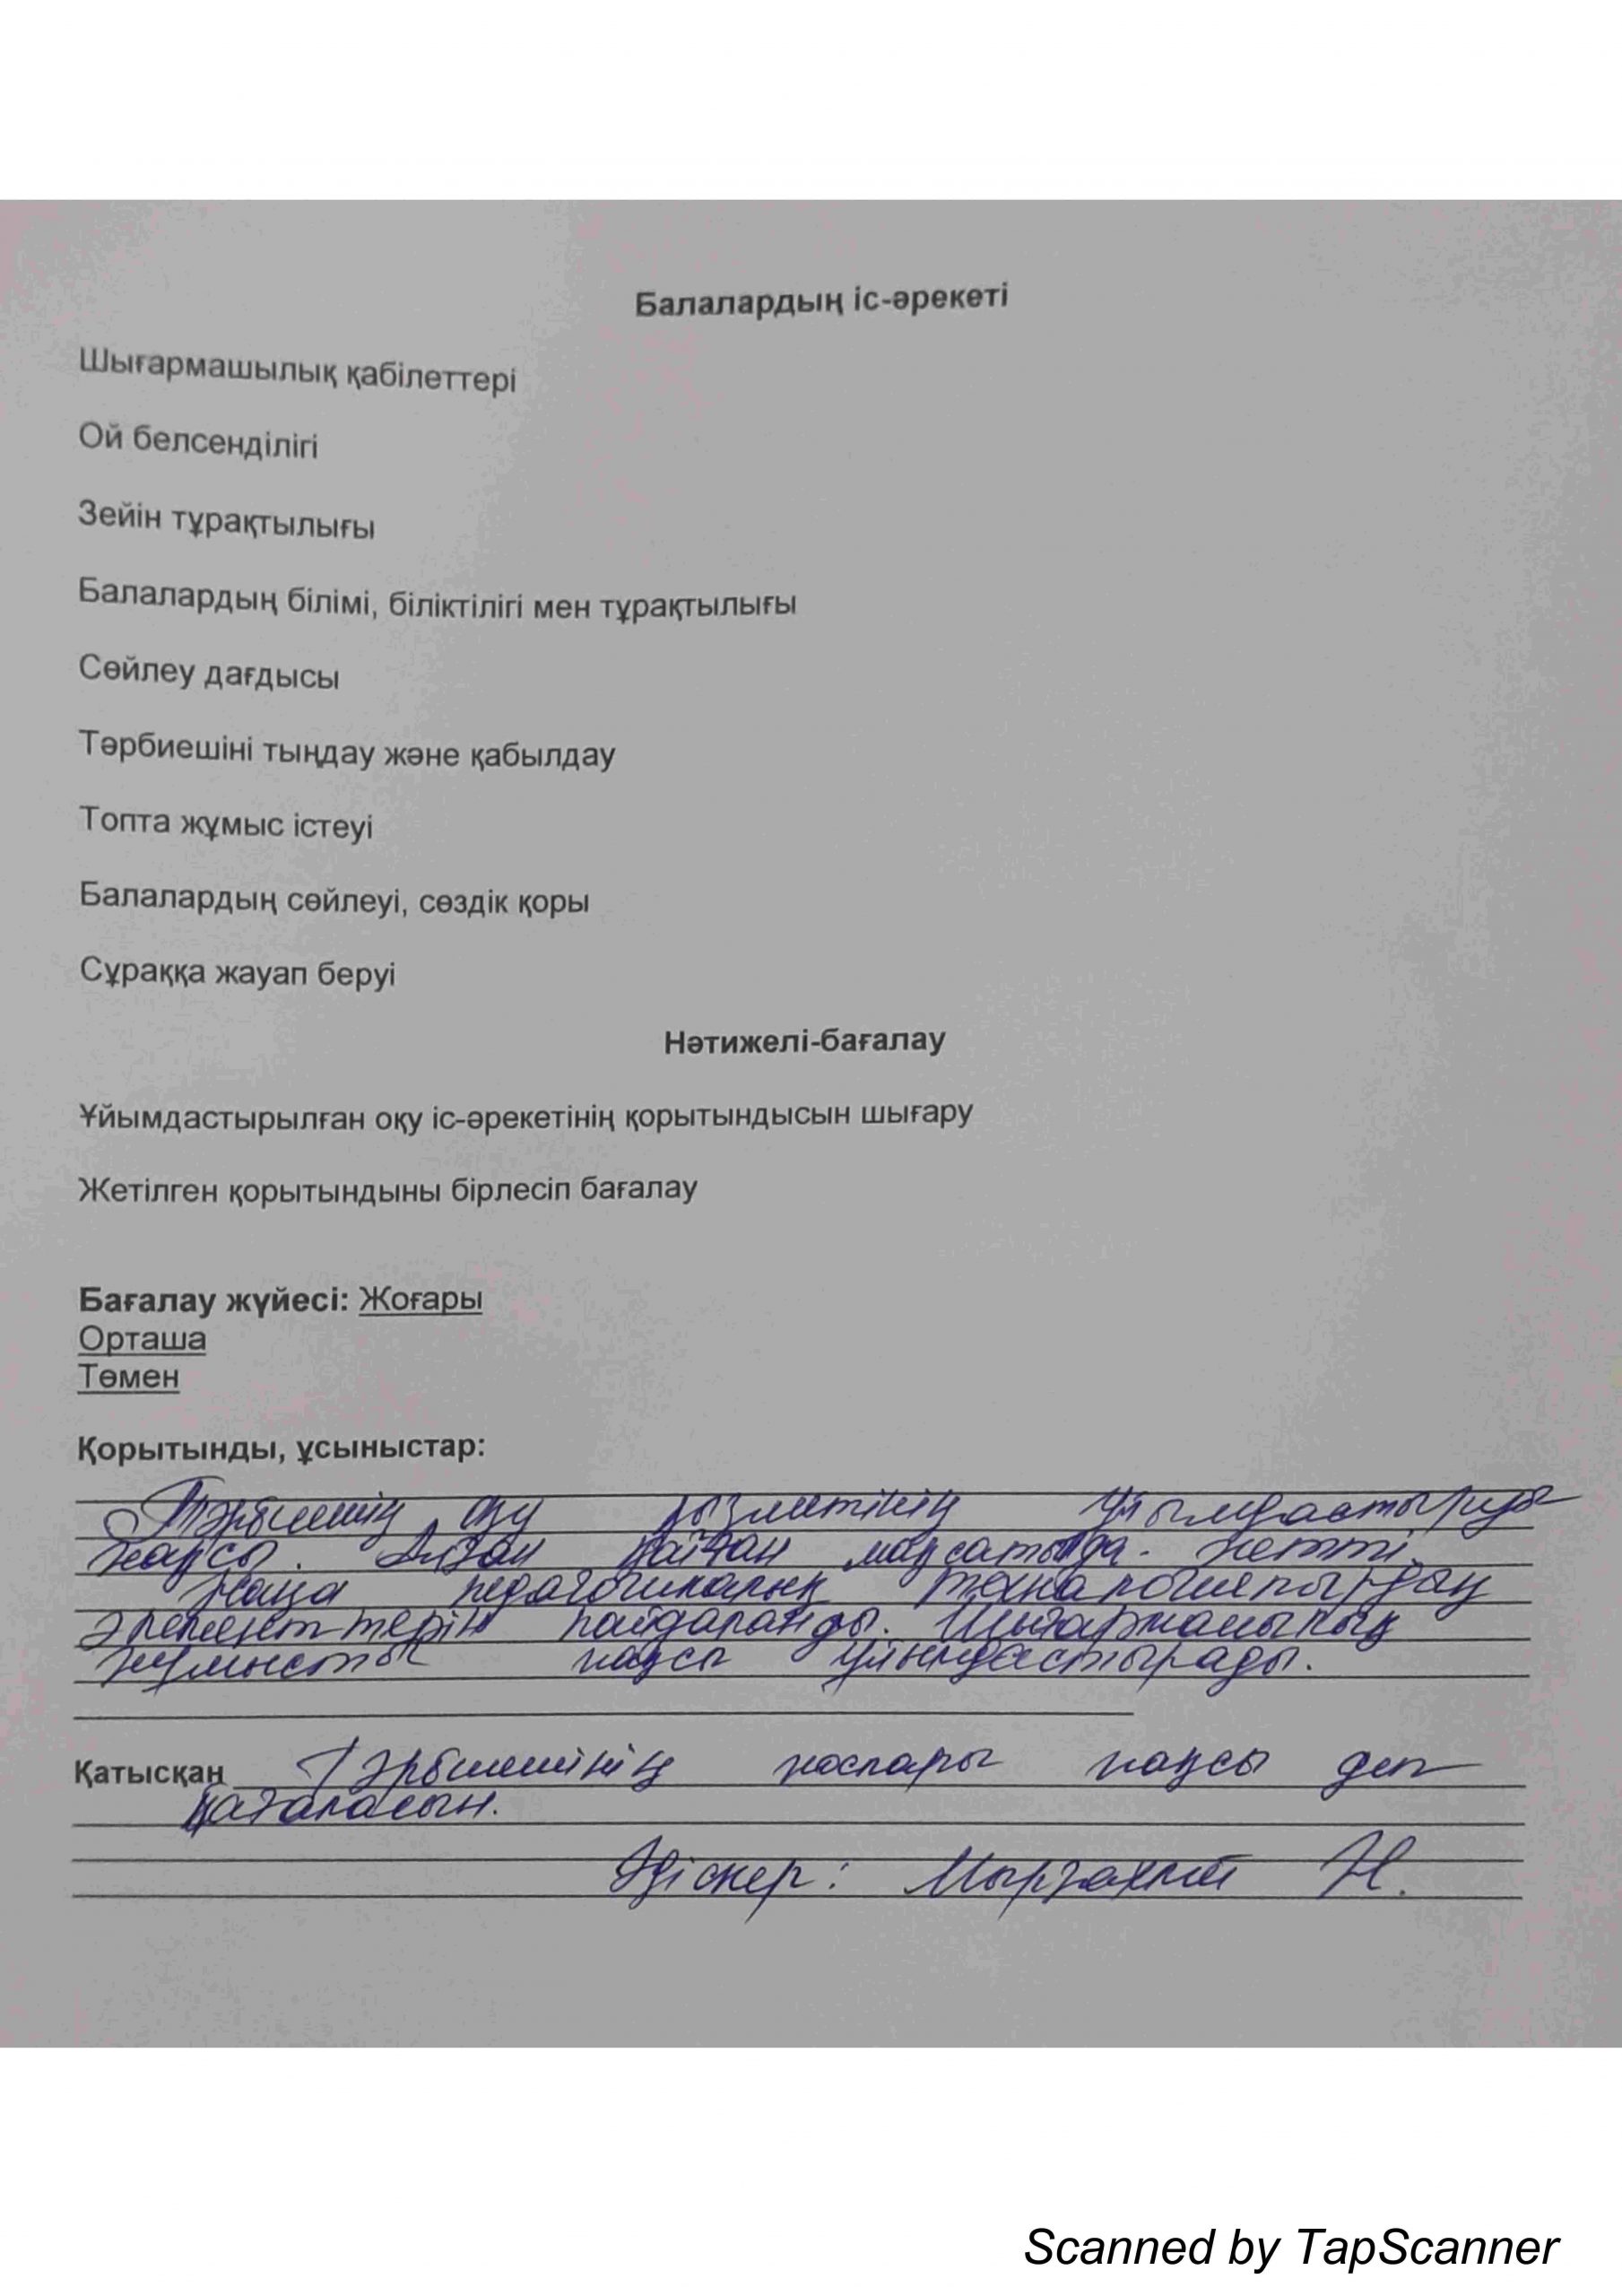 Балалардың іс-әрекеті
Шығармашылық қабілеттері
Ой белсенділігі
Зейін тұрақтылығы
Балалардың білімі, біліктілігі мен тұрақтылығы
Сөйлеу дағдысы
Тәрбиешіні тыңдау және қабылдау
Топта жұмыс істеуі
Балалардың сөйлеуі, сөздік қоры
Сұраққа жауап беруі
Нәтижелі-бағалау
Ұйымдастырылған оқу іс-әрекетінің қорытындысын шығару
Жетілген қорытындыны бірлесіп бағалау
Бағалау жүйесі: Жоғары
Орташа
Төмен
Қорытынды, ұсыныстар:
Тәрбиешінің оқу қызметінің ұйымдастыруы
жақсы. Алған мақсатында жетті.
Жаңа педагогикалық технологиялырдың
элементтерін пайдаланды. Шығармашылық
жұмысты жақсы ұйымдастырады.
Қатысқан Тәрбиешінің жоспары жақсы деп
бағаласын.
Әдіскер: Мырзахмет Н.
Scanned by TapScanner